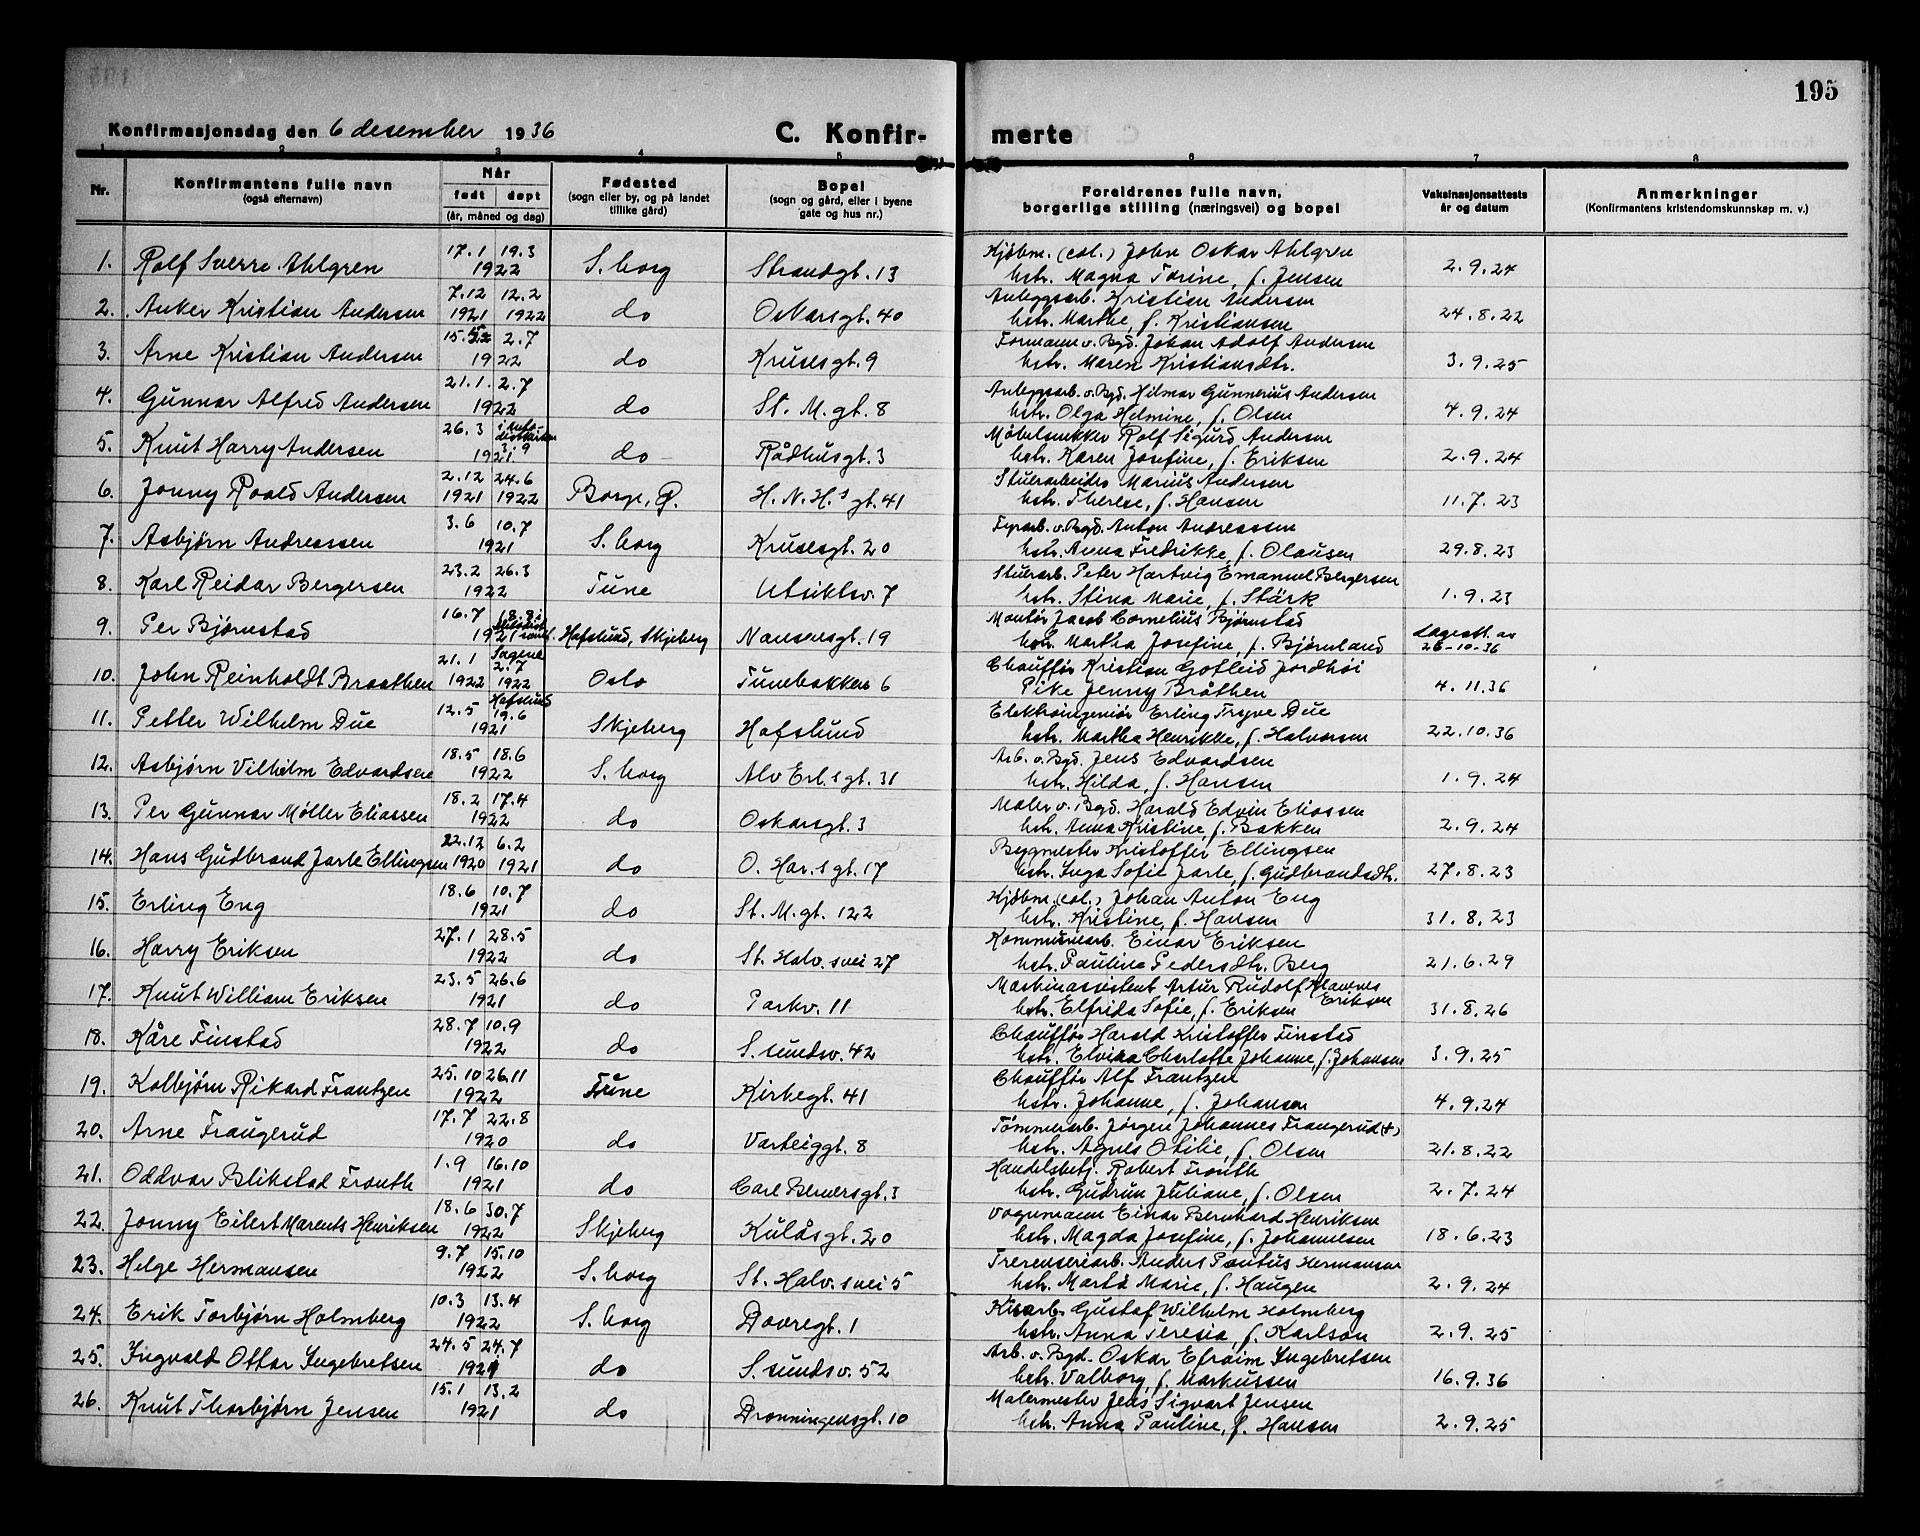 195
Konfirmasjonsdag den 6 desember 1936 C. Konfir- merte
1 2 3 4 5 6 7 8
Nr. Konfirmantens fulle navn (også efternavn) Når født døpt (år, måned og dag) Fødested (sogn eller by, og på landet tillike gård) Bopel (sogn og gård, eller i byene gate og hus nr.) Foreldrenes fulle navn, borgerlige stilling (næringsvei) og bopel Vaksinasjonsattests år og datum Anmerkninger (Konfirmantens kristendomskunnskap m. v.)
1. Rolf Sverre Ahlgren 17.1 19.3 1922 S.borg Strandgt. 13 Kjøbm. (col.) John Oskar Ahlgren
hstr. Magna Torine, f. Jensen 2.9.24
2. Anker Kristian Andersen 7.12 1921 12.2 1922 do Oskarsgt. 40 Anleggsarb. Kristian Andersen
hstr. Marthe, f. Kristiansen 24.8.22
3. Arne Kristian Andersen 15.5 2.7 1922 do Krusesgt. 9 Formann v. Bgd. Johan Adolf Andersen
hstr. Maren Kristiansdtr. 3.9.25
4. Gunnar Alfred Andersen 21.1 2.7 1922 do St. M.gt. 8 Anleggsarb. v. Bgd. Hilmar Gunnerius Andersen
hstr. Olga Helmine, f. Olsen 4.9.24
5. Knut Harry Andersen 26.3 1921 do Rådhusgt. 3 Møbelsnekker Rolf Sigurd Andersen
hstr. Karen Josefine, f. Eriksen 2.9.24
6. Jonny Roald Andersen 2.12 1921 24.6 1922 Borge, Ø. H.N.H.s gt. 41 Stuerarbeider Marius Andersen
hstr. Therese, f. Hansen 11.7.23
7. Asbjørn Andressen 3.6 10.7 1921 S.borg Krusesgt. 20 Fyrarb. v. Bgd. Anton Andresssen
hstr. Anna Fredrikke, f. Olausen 29.8.23
8. Karl Reidar Bergersen 23.2 26.3 1922 Tune Utsiktsv. 7 Stuerarb. Peter Hartvig Emanuel Bergersen
hstr. Stina Marie, f. Stärk 1.9.23
9. Per Bjørnstad 16.7 18.8 1921 Hafslund, Skjeberg Nansensgt. 19 Montør Jacob Cornelius Bjørnstad
hstr. Martha Josefine, f. Bjørnland Lægeatt. av 26-10-36
10. John Reinholdt Braathen 21.1 1922 Sagene 2.7 1922 Oslo Tunebakken 6 Chauffør Kristian Gotleid Jordhøi
Pike Jenny Bråthen 4.11.36
11. Petter Wilhelm Due 12.5 Hafslund 19.6 1921 Skjeberg Hafslund Elektroingeniør Erling Trygve Due
hstr. Martha Henrikke, f. Halvorsen 22.10.36
12. Asbjørn Vilhelm Edvardsen 18.5 18.6 1922 S.borg Alv Erl.s gt. 31 Arb. v. Bgd. Jens Edvardsen
hstr. Hilda, f. Hansen 1.9.24
13. Per Gunnar Møller Eliassen 18.2 17.4 1922 do Oskarsgt. 3 Maler v. Bgd. Harald Edvin Eliassen
hstr. Anna Kristine, f. Bakken 2.9.24
14. Hans Gudbrand Jarle Ellingsen 22.12 1920 6.2 1921 do O. Har.s gt. 17 Bygmester Kristoffer Ellingsen
hstr. Inga Sofie Jarle, f. Gudbrandsdtr. 27.8.23
15. Erling Eng 18.6 10.7 1921 do St. M.gt. 122 Kjøbm. (col.) Johan Anton Eng
hstr. Kristine, f. Hansen 31.8.23
16. Harry Eriksen 27.1 28.5 1922 do St. Halv.svei 27 Kommunearb. Einar Eriksen
hstr. Pauline Pedersdtr. Berg 21.6.29
17. Knut William Eriksen 23.5 26.6 1921 do Parkv. 11 Maskinassistent Artur Rudolf Eriksen
hstr. Elfrida Sofie, f. Eriksen 31.8.26
18. Kåre Finstad 28.7 10.9 1922 do S.sundsv. 42 Chauffør Harald Kristoffer Finstad
hstr. Elvira Charlotte Johanne, f. Johansen 3.9.25
19. Kolbjørn Rikard Frantzen 25.10 26.11 1922 Tune Kirkegt. 41 Chauffør Alf Frantzen
hstr. Johanne, f. Johansen 4.9.24
20. Arne Fraugerud 17.7 22.8 1920 do Varteiggt. 8 Tømmerarb. Jørgen Johannes Fraugerud (+)
hstr. Agnes Otilie, f. Olsen 21.8.22
21. Oddvar Blikstad Frouth 1.9 16.10 1921 do Carl Bernersgt. 3 Handelsbetj. Robert Frouth
hstr. Gudrun Juliane, f. Olsen 2.7.24
22. Jonny Eilert Marents Henriksen 18.6 30.7 1922 Skjeberg Kulåsgt. 20 Vognmann Einar Bernhard Henriksen
hstr. Magda Josefine, f. Johannesen 18.6.23
23. Helge Hermansen 9.7 15.10 1922 S.borg St. Halv.svei 5 Treresneriarb. Anders Pontus Hermansen
hstr. Marta Marie, f. Haugen 2.9.24
24. Erik Torbjørn Holmberg 10.3 13.4 1922 S.borg Dovregt. 1 Kisarb. Gustaf Wilhelm Holmberg
hstr. Anna Teresia, f. Karlson 2.9.25
25. Ingvald Ottar Ingebretsen 24.5 24.7 1921 do S.sundsv. 52 Arb. v. Bgd. Oskar Efraim Ingebretsen
hstr. Valborg, f. Markussen 16.9.36
26. Knut Thorbjørn Jensen 15.1 13.2 1921 do Dronningensgt. 10 Malermester Jens Sigvart Jensen
hstr. Anna Pauline, f. Hansen 2.9.25